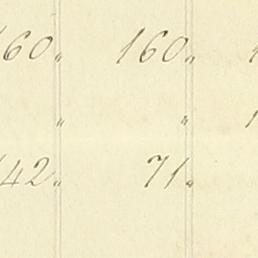 160 " 160 "
" "
142 " 71 "